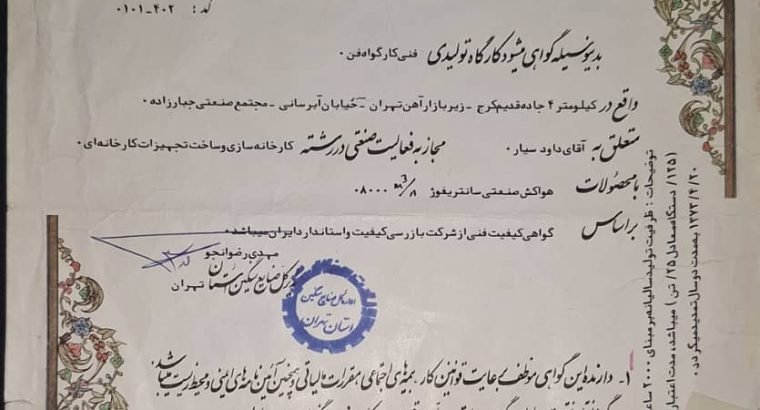 کد : ۴۰۲-۰۱۰۱
بدینوسیله گواهی میشود کارگاه تولیدی فنی کارگواه فن .
واقع در کیلومتر ۴ جاده قدیم کرج - زیر بازار آهن تهران - خیابان آبرسانی - مجتمع صنعتی جبارزاده .
متعلق به آقای داود سیار . مجاز به فعالیت صنعتی در رشته کارخانه سازی و ساخت تجهیزات کارخانه ای .
با محصولات هواکش صنعتی سانتریفوژ
براساس گواهی کیفیت فنی از شرکت بازرسی کیفیت و استاندارد ایران میباشد .
مهدی رضوانجو
مدیر کل صنایع سنگین استان تهران
اداره کل صنایع سنگین
استان تهران
۱- دارنده این گواهی موظف به رعایت قوانین کار ، بیمه های اجتماعی ، مقررات مالیاتی و همچنین آئین نامه های ایمنی و محیط زیست میباشد .
توضیحات : ظرفیت تولید سالیانه بر مبنای ۲۰۰۰
(۱۲۵/ دستگاه معادل ۲۵/ تن ) میباشد ، مدت اعتبار
۱۳۷۳/۴/۲۰ به مدت دو سال تمدید میگردد .